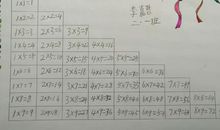 1×1=1
1×2=2 2×2=4
1×3=3 2×3=6 3×3=9
1×4=4 2×4=8 3×4=12 4×4=16
1×5=5 2×5=10 3×5=15 4×5=20 5×5=25
1×6=6 2×6=12 3×6=18 4×6=24 5×6=30 6×6=36
1×7=7 2×7=14 3×7=21 4×7=28 5×7=35 6×7=42 7×7=49
1×8=8 2×8=16 3×8=24 4×8=32 5×8=40 6×8=48 7×8=56 8×8=64
1×9=9 2×9=18 3×9=27 4×9=36 5×9=45 6×9=54 7×9=63 8×9=72
李
二·一班